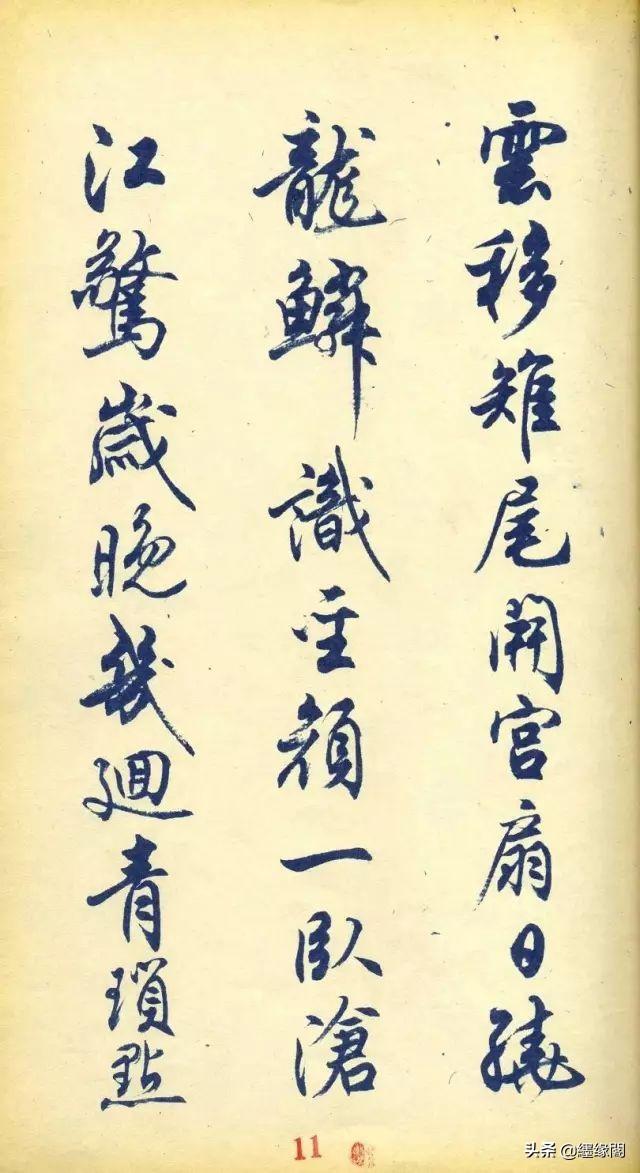 雲移雉尾開宮扇日繞
龍鱗識聖顏一臥滄
江驚歲晚幾迴青瑣點
11
头条 @纆缘閣